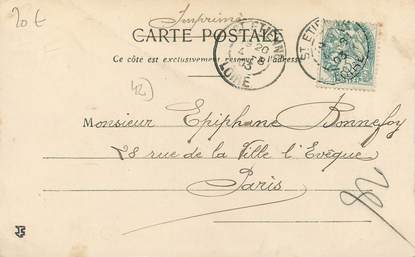 20 €
Imprimé
CARTE POSTALE
Ce côté est exclusivement réservé à l'adresse
ST ETIENNE
LOIRE
ST ETIENNE
LOIRE
42
Monsieur Epiphane Bonnefoy
28 rue de la Ville l'Evêque
Paris